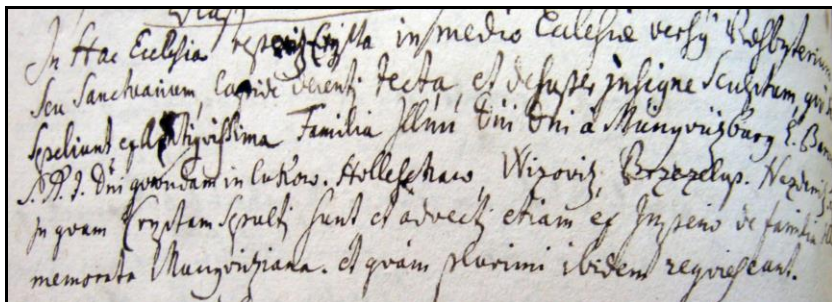 In Hac Ecclesia Crypta in medio Ecclesiae versus Presbyterium
seu Sanctuarium, Lapide decenti tecta, et desuper Insigne Sculptum, qui
Sepeliunt Familia Illmi Dni Dni à Münqviczburg L. Bar
S. R. I. Dni qvondam in Lukow. Holleschaw, Wizoviz,
In qvam Cryptam Sepulti sunt et advecti etiam ex Imperio de familia
memorata Munqvicziana. et qvám plurimi ibidem reqviescant.